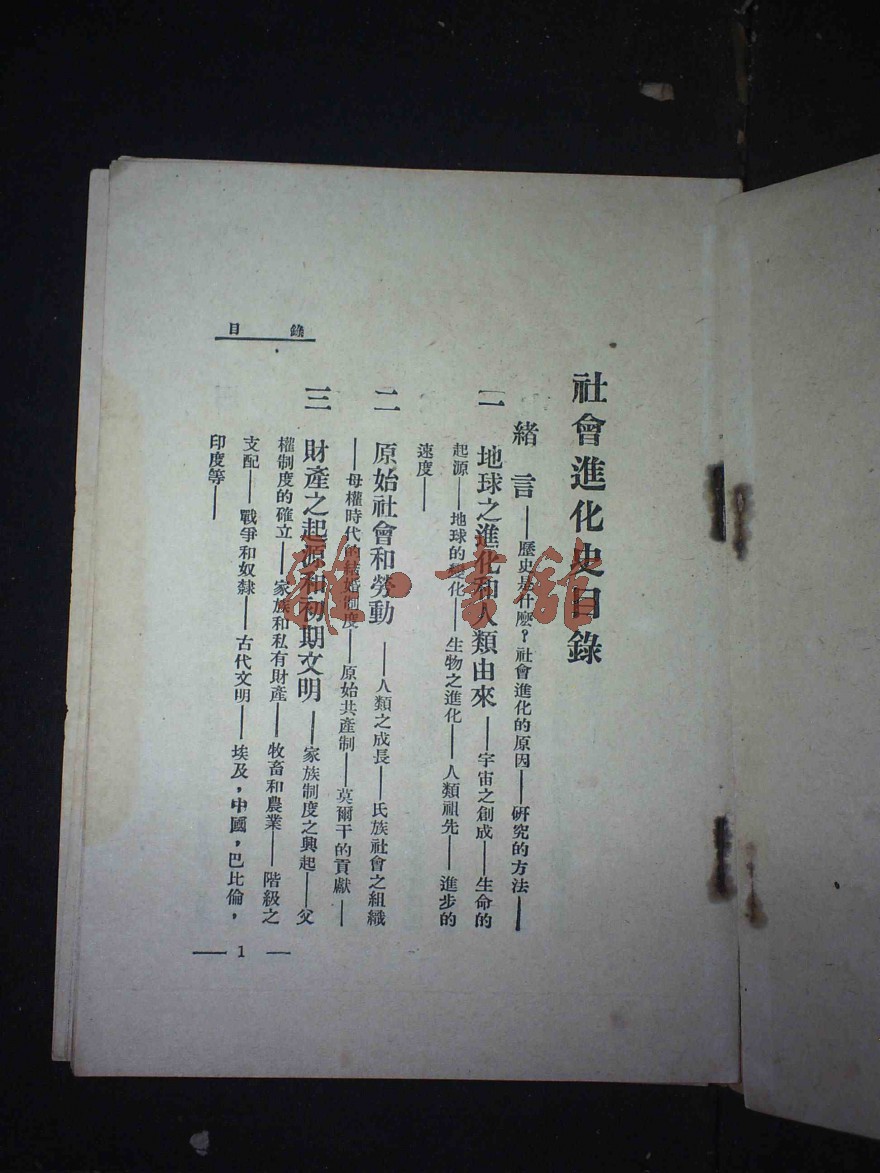 社會進化史目錄
緒言——歷史是什麼？社會進化的原因——研究的方法——
一 地球之進化和人類由來——宇宙之創成——生命的
起源——地球的變化——生物之進化——人類祖先——進步的
速度——
二 原始社會和勞動——人類之成長——氏族社會之組織
——母權時代的結婚制度——原始共產制——莫爾干的貢獻——
三 財產之起源和初期文明——家族制度之興起——父
權制度的確立——家族和私有財產——牧畜和農業——階級之
支配——戰爭和奴隸——古代文明——埃及，中國，巴比倫，
印度等——
目錄
— 1 —
雜·書館